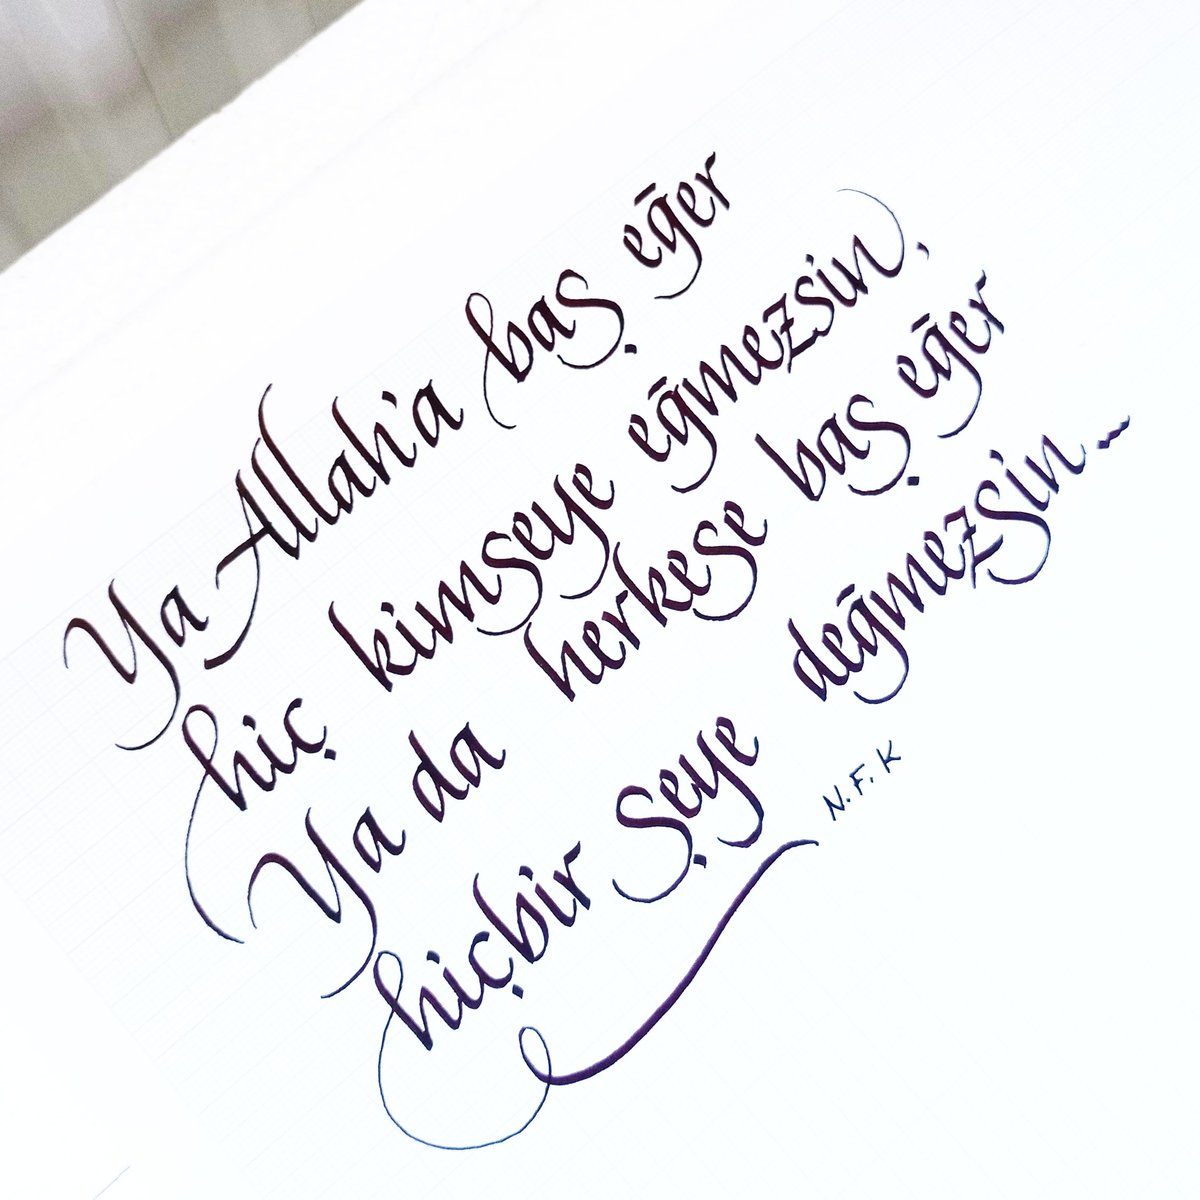 Ya Allah'a baş eğer
hiç kimseye eğmezsin,
Ya da herkese baş eğer
hiçbir şeye değmezsin...
N.F.K